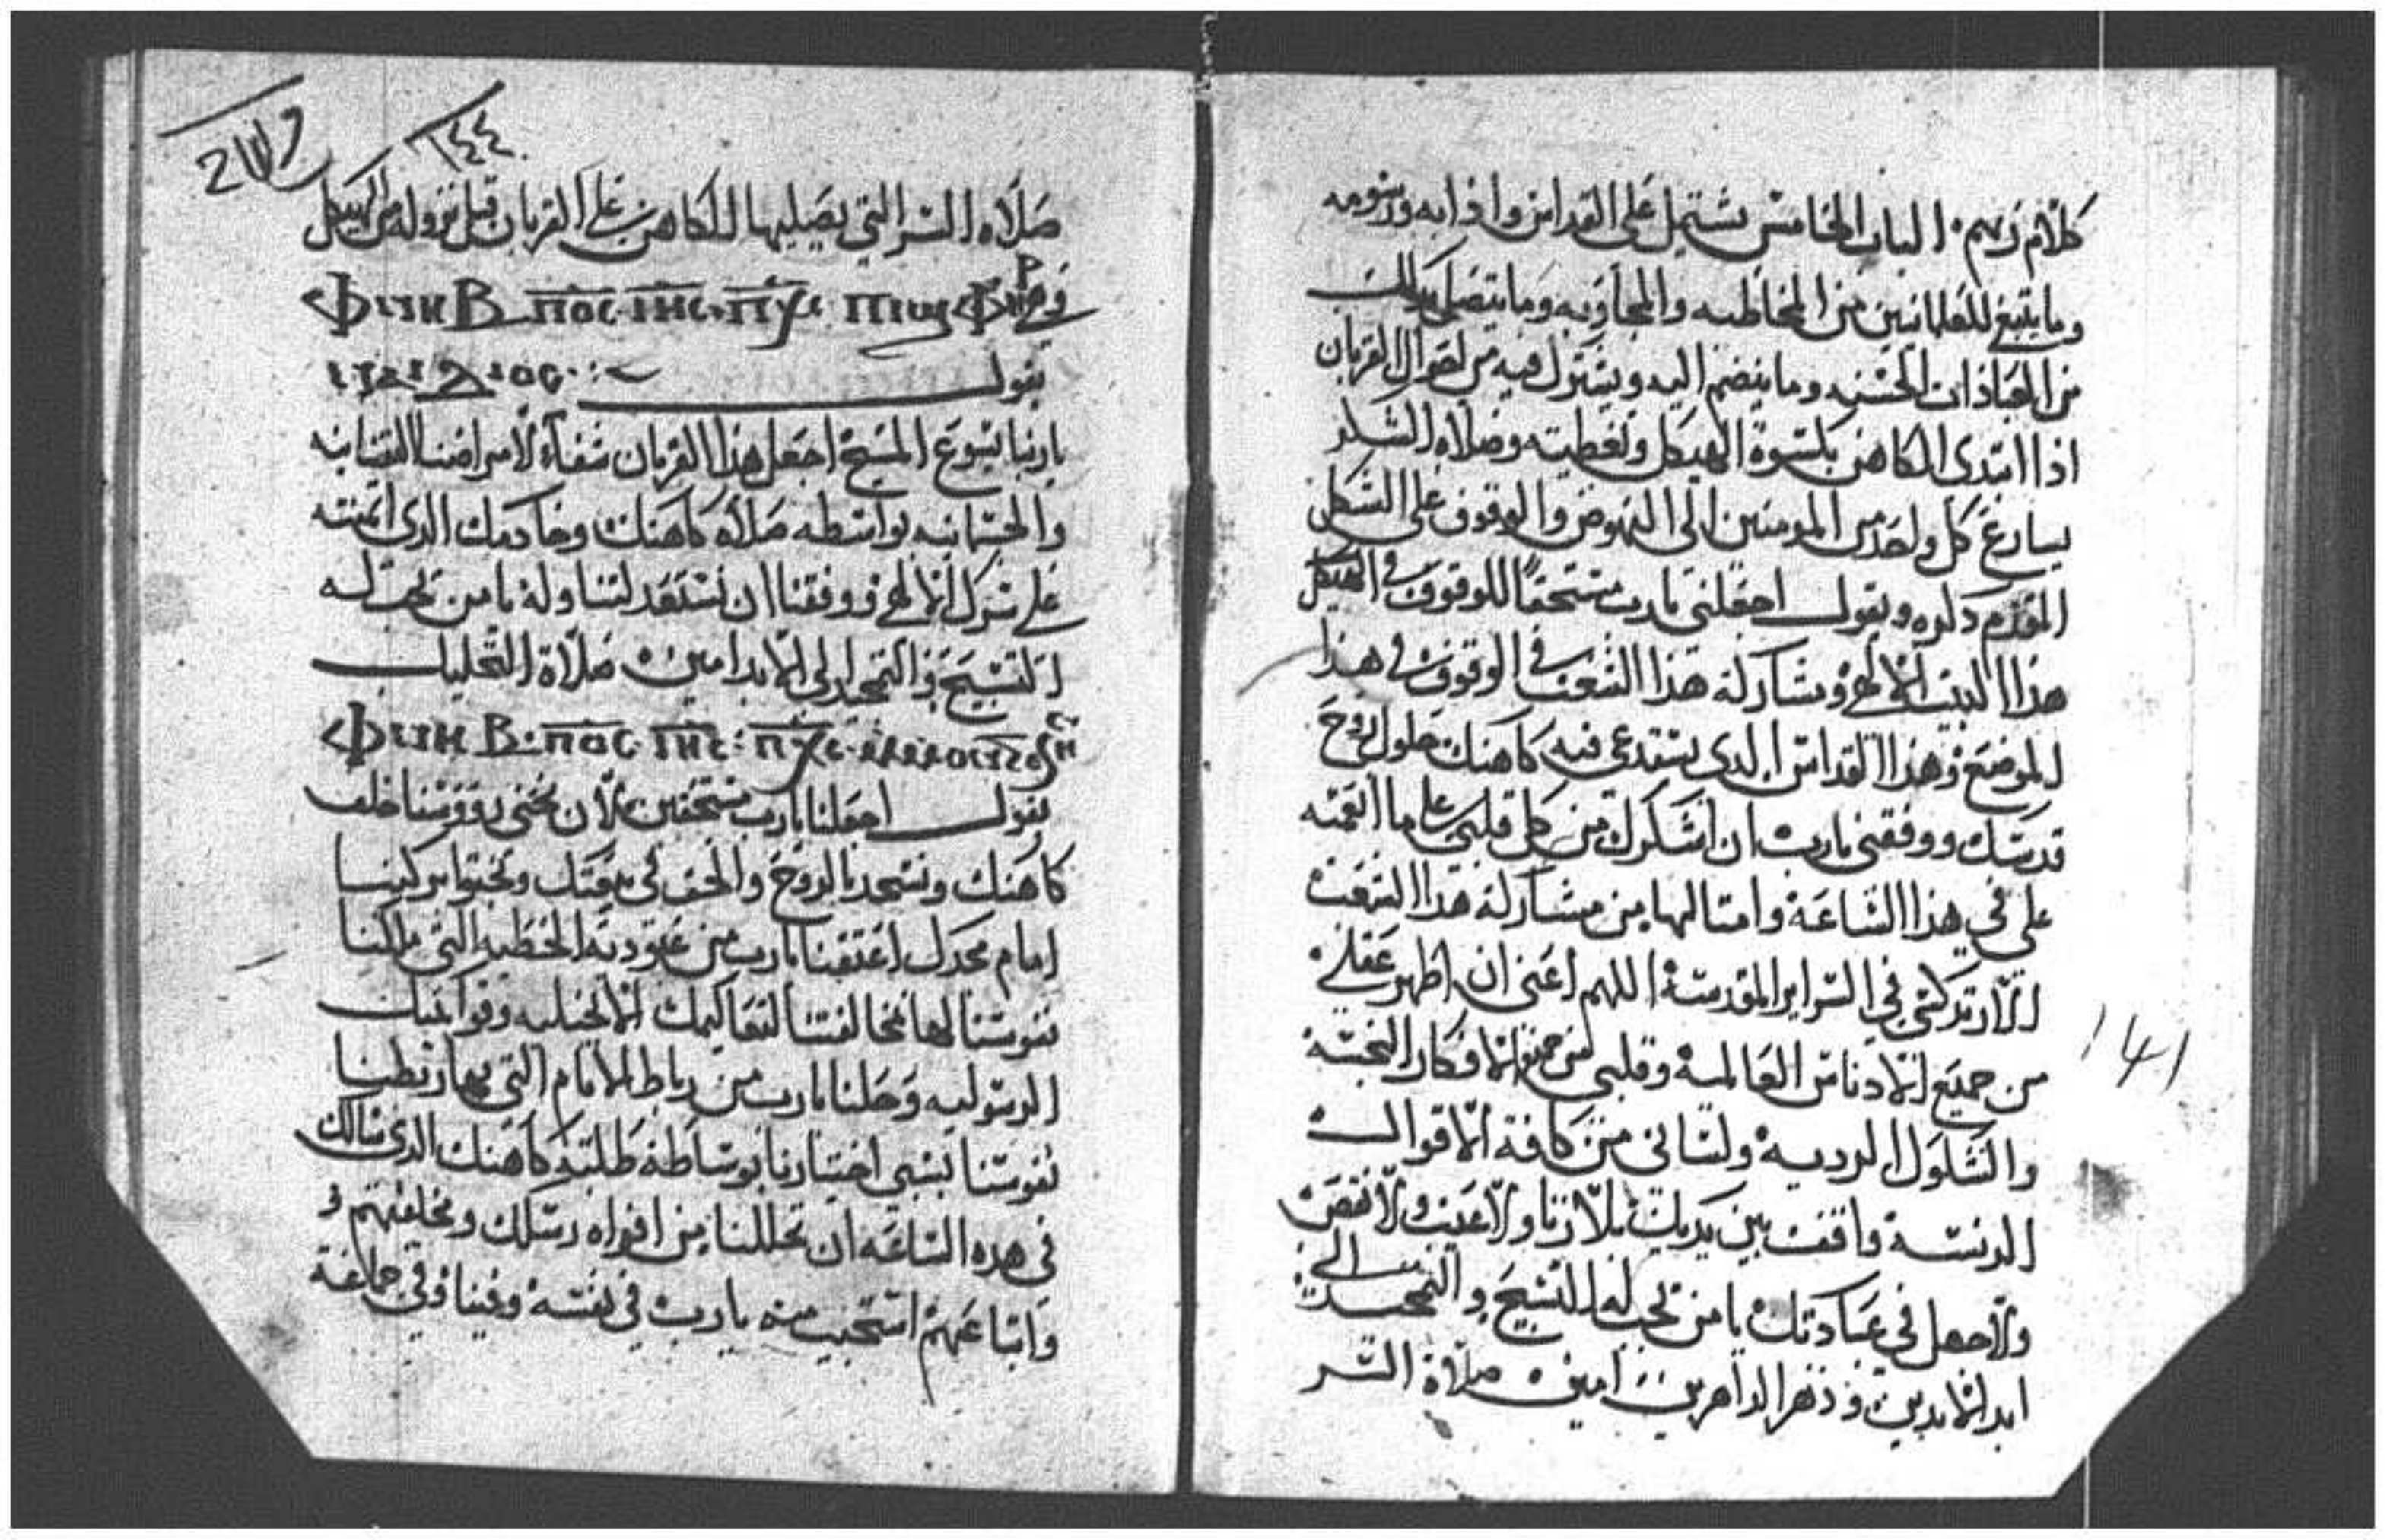 كلام رسم. الباب الخامس يشتمل على القداس وادابه ورسومه
وما ينبغي للعلمانيين من المخاطبه والمجاوبه وما يتصل بذلك
من العبادات الحسنه وما ينضم اليه ويشترك فيه من احوال القربان
اذا ابتدى الكاهن بكسوة الهيكل وتغطيته وصلاة الشكر
يسارع كل واحد من المومنين الى النهوض والوقوف على الشكل
المقدم ذكره ويقول اجعلني يارب مستحقاً للوقوف في الهيكل
هذا البيت الالهي ومشاركة هذا الشعب في الوقوف في هذا
الموضع وهذا القداس الذي يستدعي فيه كاهنك حلول روح
قدسك ووفقني يارب ان اشكرك من كل قلبي على ما انعمته
علي في هذا الساعة وامتالها من مشاركة هذا الشعب
الارتدكسي في السراير المقدسة اللهم اعني ان اطهر عقلي
من جميع الادناس العالمية وقلبي من جميع الافكار النجسة
والشكوك الردية ولساني من كافة الاقوال
الدنسة واقف بين يديك بلا زنا ولا عيب ولا نقص
ولا جهل في عبادتك يا من يجب له التسبيح والتمجيد الى
ابد الابدين ودهر الداهرين امين صلاة السر
١٤٤
صلاه السر التي يصليها الكاهن على القربان قبل نزوله من الهيكل
ⲫⲛⲏⲃ ⲡⲟⲥ ⲓⲏⲥ ⲡⲭⲥ
يقول
ياربنا يسوع المسيح اجعل هذا القربان شفاء لامراضنا النفسانيه
والجسمانيه بواسطه صلاه كاهنك وخادمك الذي ايمنته
على سرك الالهي ووفقنا ان نستعد لتناوله يا من يجب له
التسبيح والتمجيد الى الابد امين صلاة التحليل
ⲫⲛⲏⲃ ⲡⲟⲥ ⲓⲏⲥ ⲡⲭⲥ
يقول اجعلنا يارب مستحقين لان نحني رووسنا خلف
كاهنك ونسجد بالروح والحق في بيعتك ونجتوا بركبنا
امام مجدك اعتقنا يارب من عبودية الخطيه التي ملكنا
نفوسنا لها بمخالفتنا لتعاليمك الانجيليه وقوانينك
الرسوليه وحلنا يارب من رباط الاثام التي بها ربطنا
نفوسنا بسي اختيارنا بوساطة طلبة كاهنك الذي سالك
في هذه الساعه ان تحاللنا من افواه رسلك وخلفيهم و
واتباعهم استجيب منه يارب في نفسه وفينا وفي جماعة
141